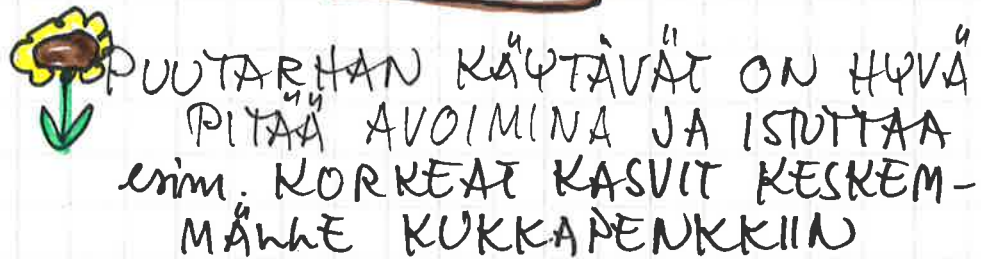 PUUTARHAN KÄYTÄVÄT ON HYVÄ
PITÄÄ AVOIMINA JA ISTUTTAA
esim. KORKEAT KASVIT KESKEM-
MÄLLE KUKKAPENKKIIN